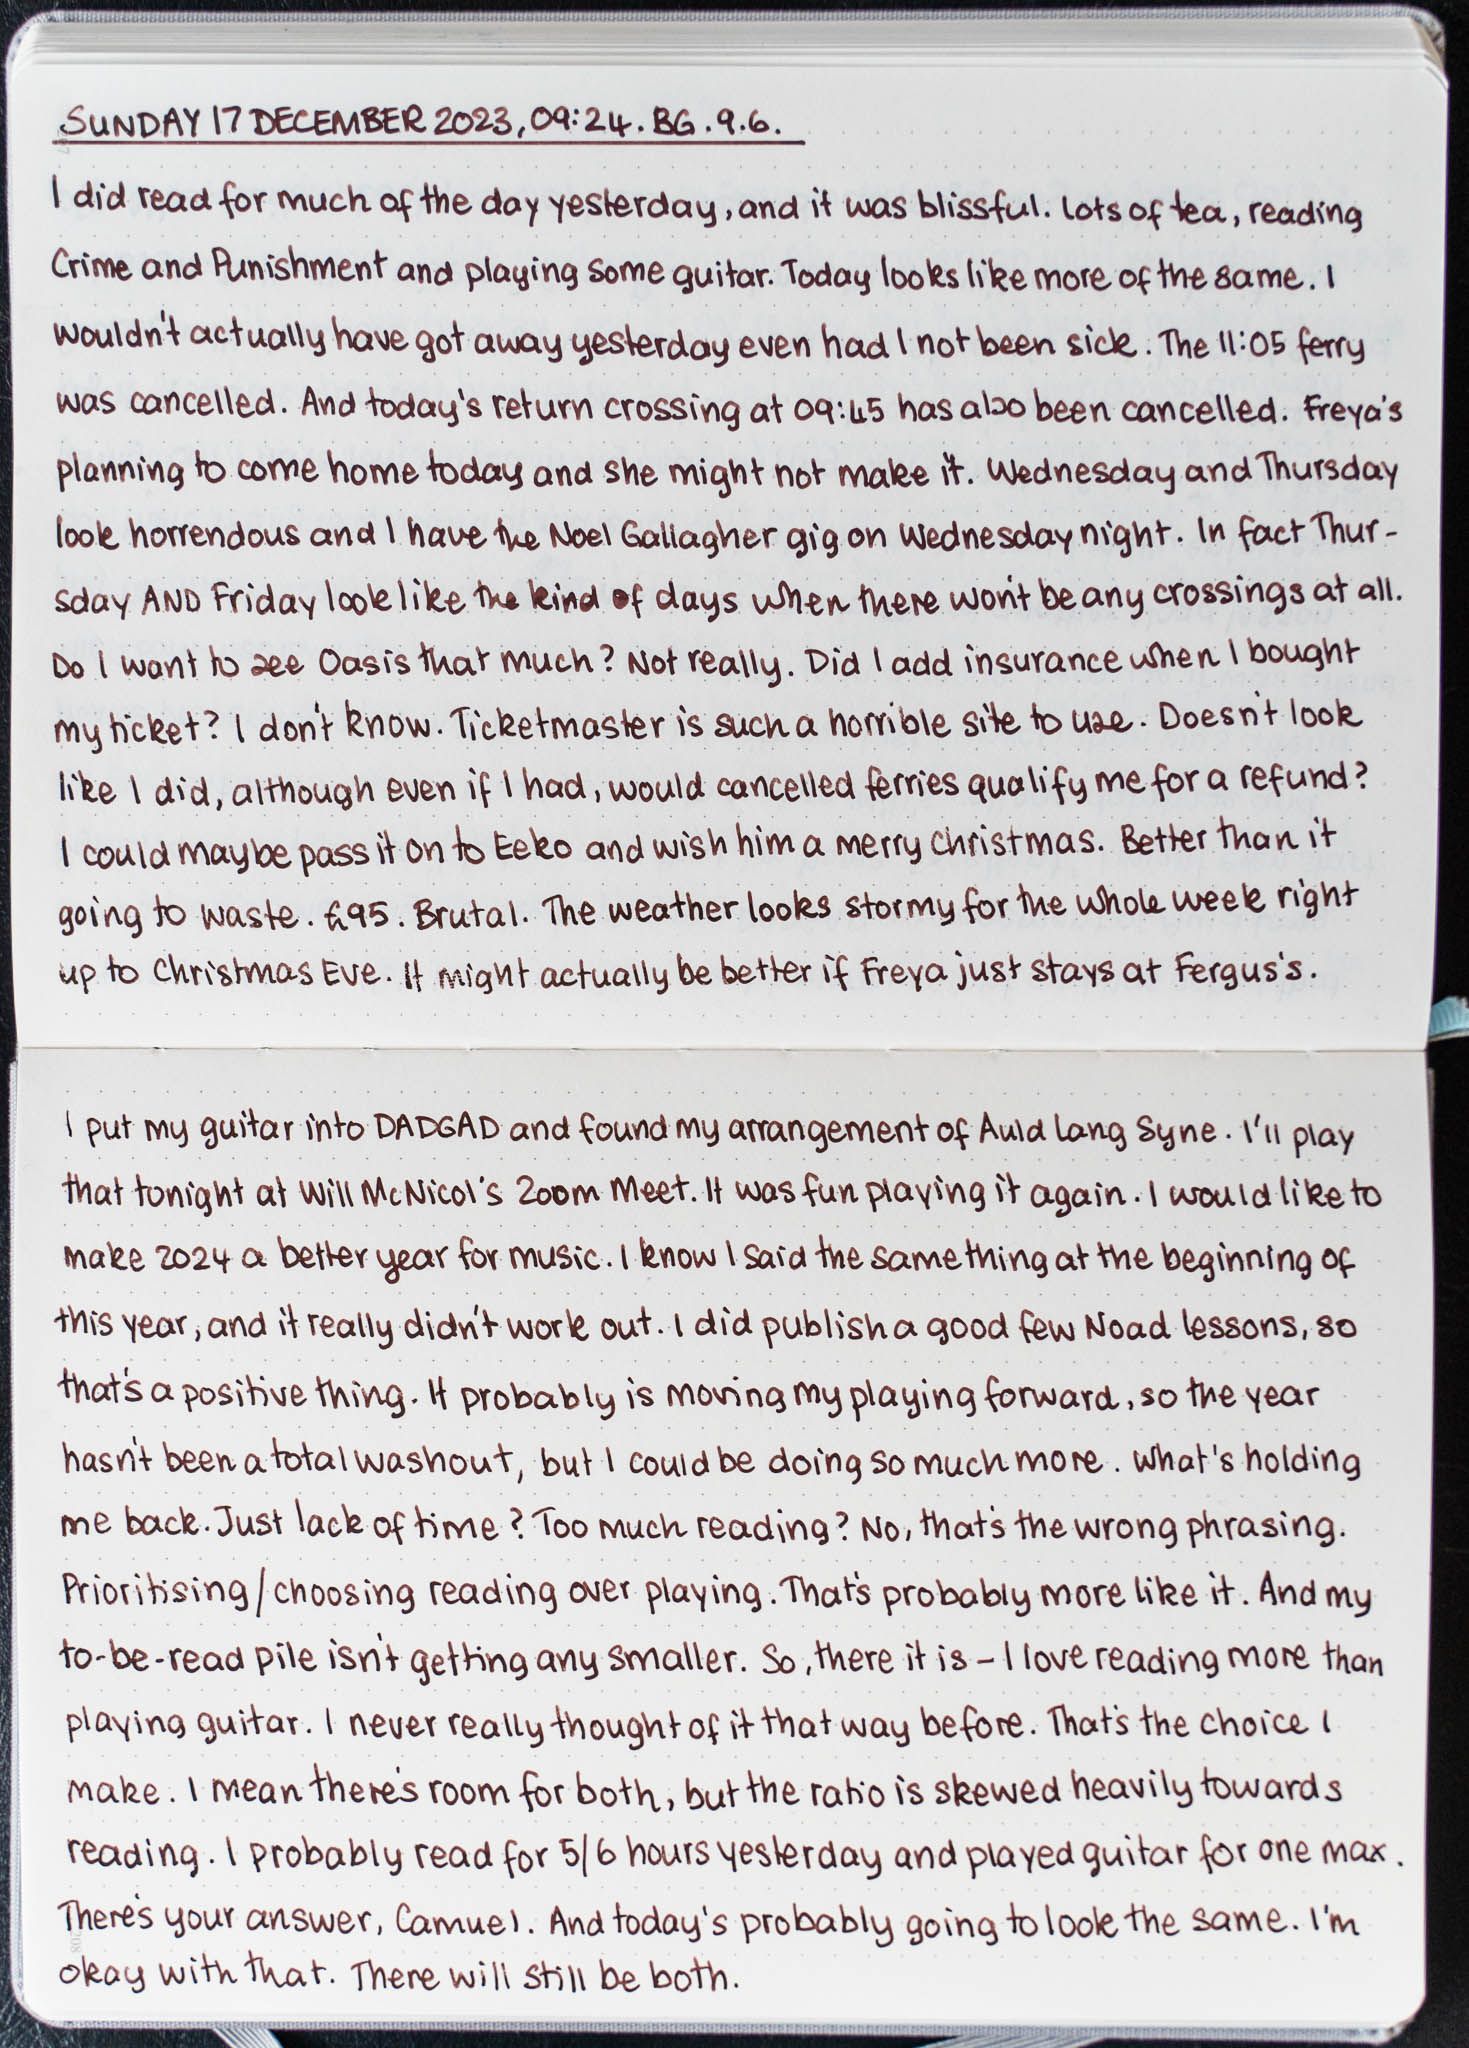 SUNDAY 17 DECEMBER 2023, 09:24. BG. 9.6.
I did read for much of the day yesterday, and it was blissful. Lots of tea, reading
Crime and Punishment and playing some guitar. Today looks like more of the same. I
wouldn't actually have got away yesterday even had I not been sick. The 11:05 ferry
was cancelled. And today's return crossing at 09:45 has also been cancelled. Freya's
planning to come home today and she might not make it. Wednesday and Thursday
look horrendous and I have the Noel Gallagher gig on Wednesday night. In fact Thur-
sday AND Friday look like the kind of days when there won't be any crossings at all.
Do I want to see Oasis that much? Not really. Did I add insurance when I bought
my ticket? I don't know. Ticketmaster is such a horrible site to use. Doesn't look
like I did, although even if I had, would cancelled ferries qualify me for a refund?
I could maybe pass it on to Eeko and wish him a merry Christmas. Better than it
going to waste. £95. Brutal. The weather looks stormy for the whole week right
up to Christmas Eve. It might actually be better if Freya just stays at Fergus's.
I put my guitar into DADGAD and found my arrangement of Auld Lang Syne. I'll play
that tonight at Will McNicol's Zoom Meet. It was fun playing it again. I would like to
make 2024 a better year for music. I know I said the same thing at the beginning of
this year, and it really didn't work out. I did publish a good few Noad lessons, so
that's a positive thing. It probably is moving my playing forward, so the year
hasn't been a total washout, but I could be doing so much more. What's holding
me back. Just lack of time? Too much reading? No, that's the wrong phrasing.
Prioritising/choosing reading over playing. That's probably more like it. And my
to-be-read pile isn't getting any smaller. So, there it is – I love reading more than
playing guitar. I never really thought of it that way before. That's the choice I
make. I mean there's room for both, but the ratio is skewed heavily towards
reading. I probably read for 5/6 hours yesterday and played guitar for one max.
There's your answer, Camuel. And today's probably going to look the same. I'm
okay with that. There will still be both.
208